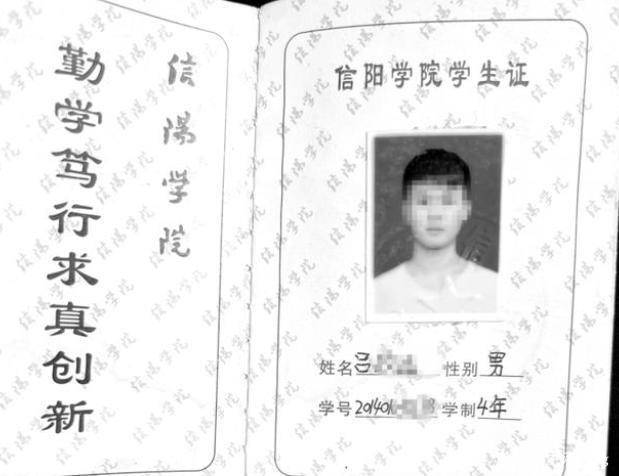 勤学笃行求真创新
信陽学院
信阳学院学生证
姓名 吕 性别 男
学号 201401 学制 4年